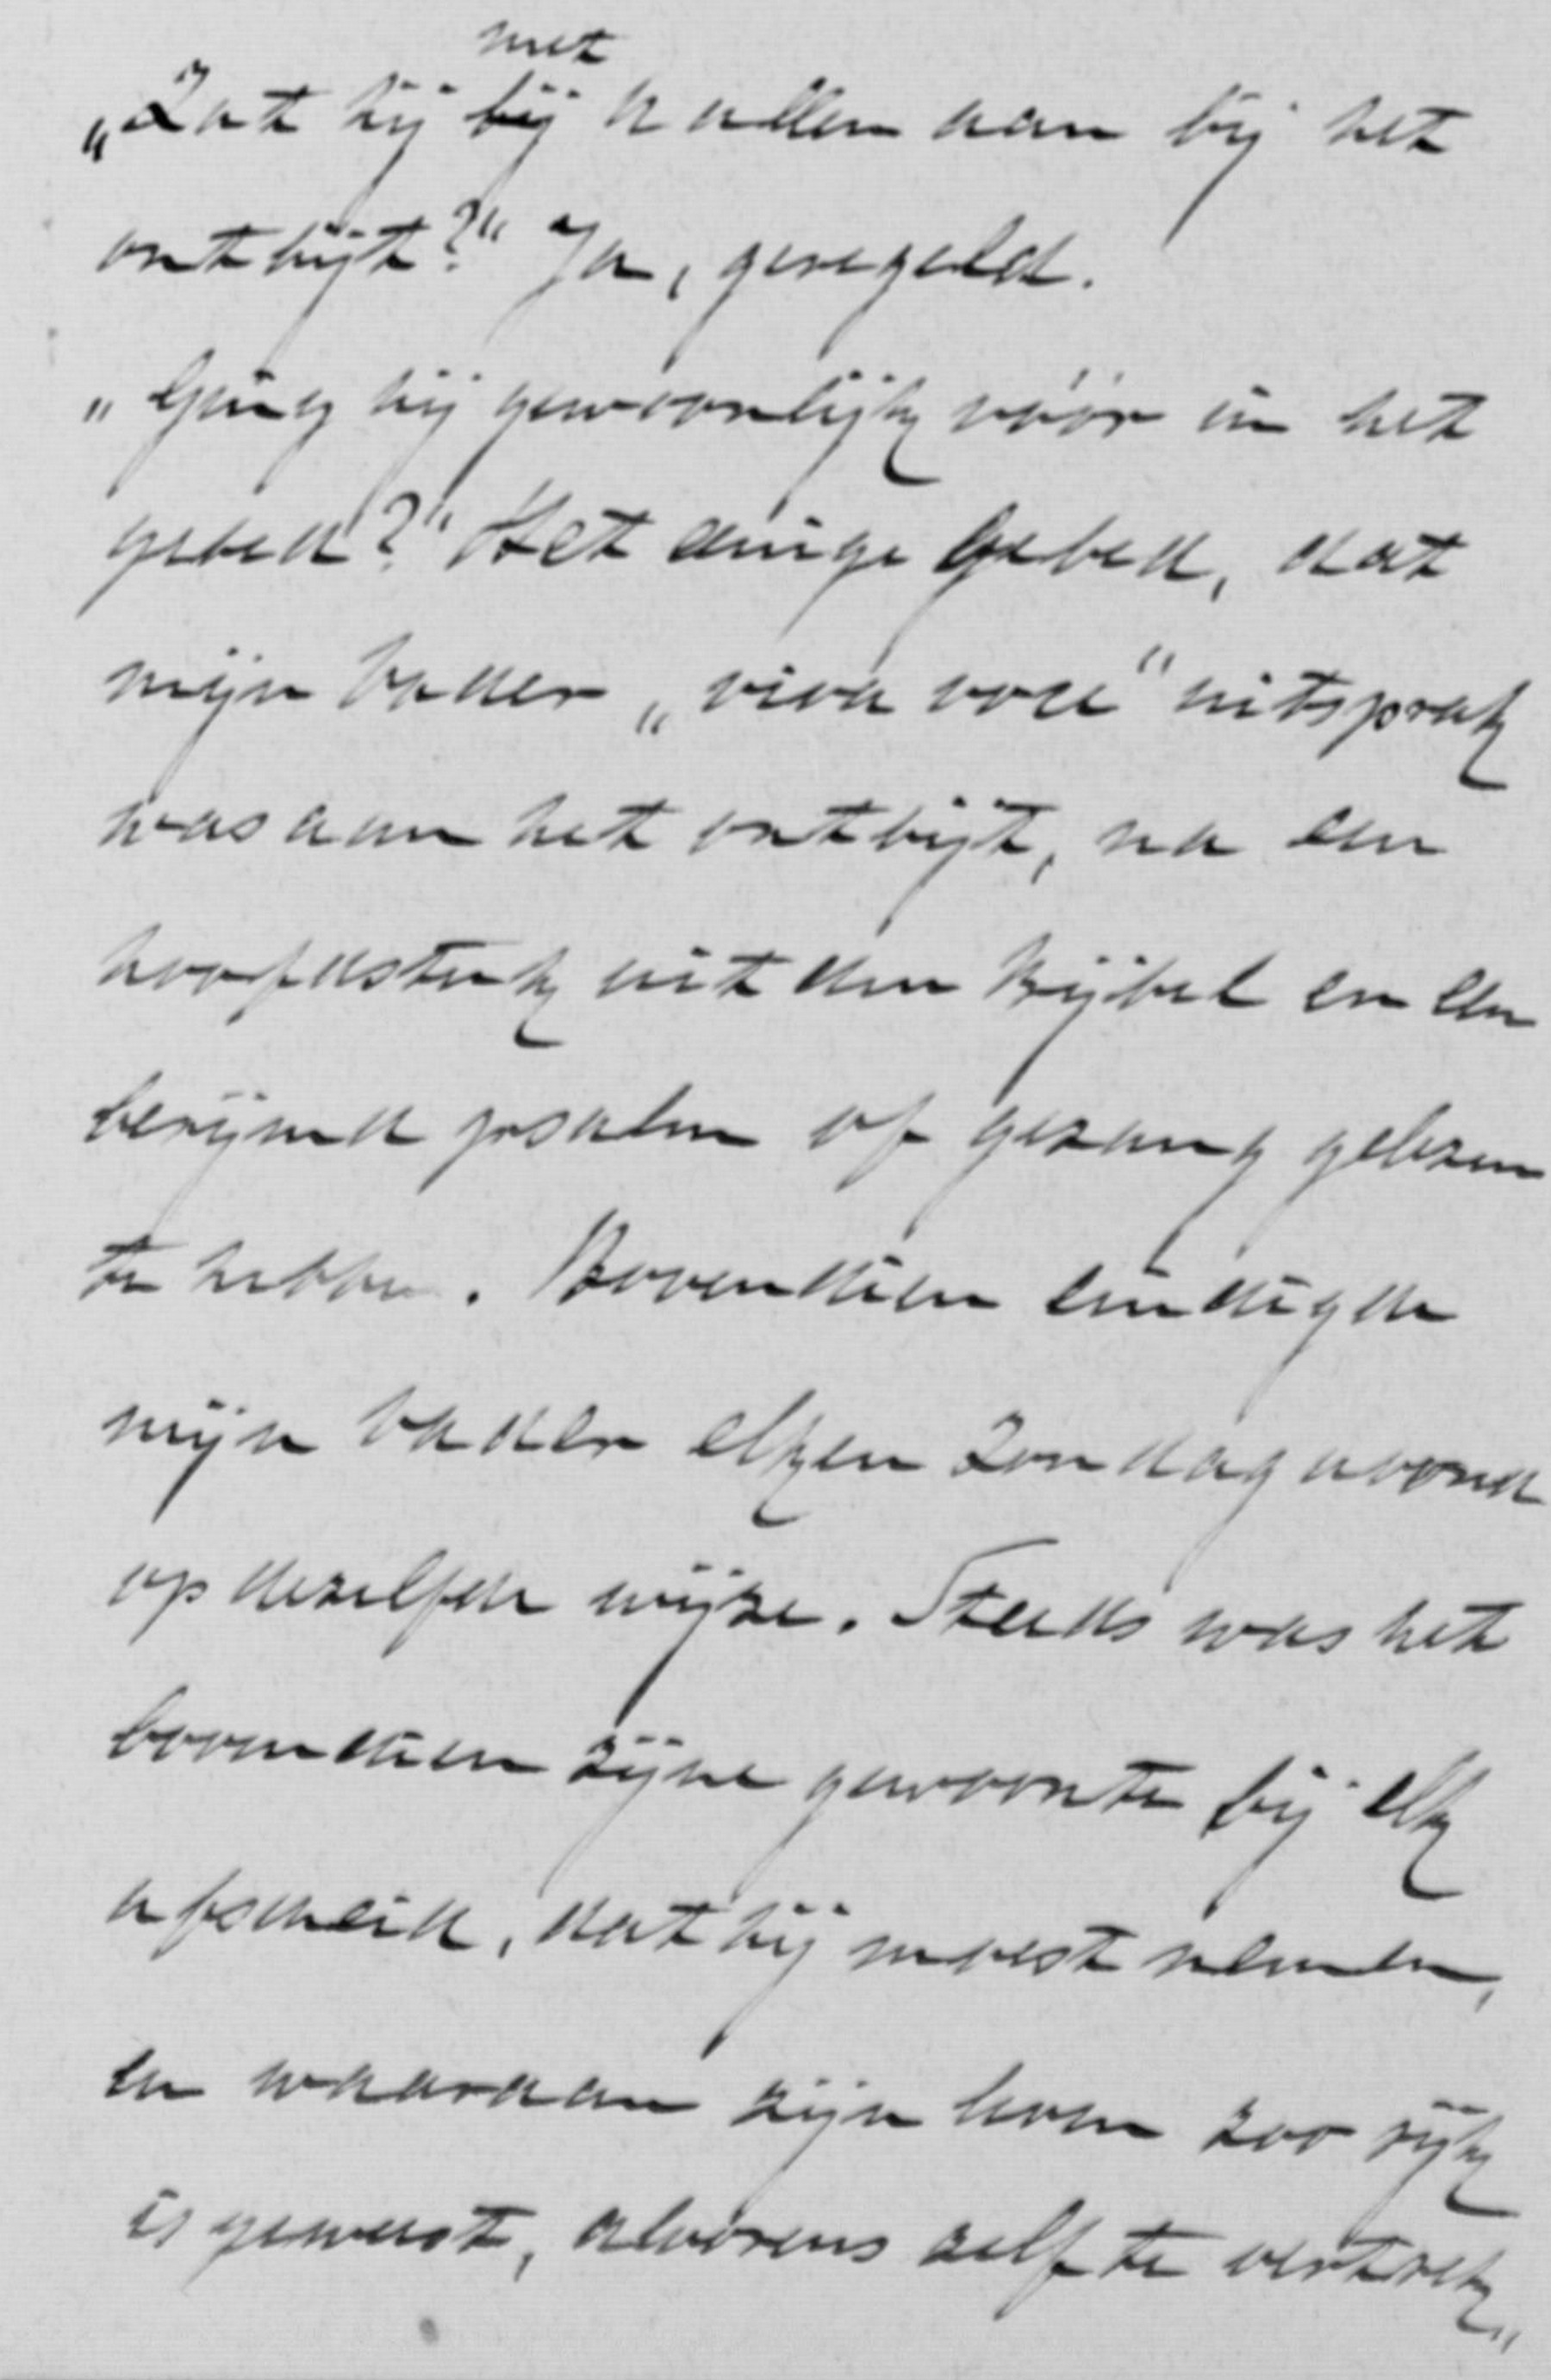 met
„Zat hij bij U allen aan bij het
ontbijt?" Ja, geregeld.
„Ging hij gewoonlijk vóór in het
gebed?" Het eenige Gebed, dat
mijn Vader „viva voce" uitsprak
was aan het ontbijt, na een
hoofdstuk uit den Bijbel en een
berijmd psalm of gezang gelezen
te hebben. Bovendien eindigde
mijn Vader elken Zondag avond
op dezelfde wijze. Steeds was het
bovendien zijne gewoonte bij elk
afscheid, dat hij moest nemen,
en waaraan zijn leven zoo rijk
is geweest, alvorens zelf te vertrek„